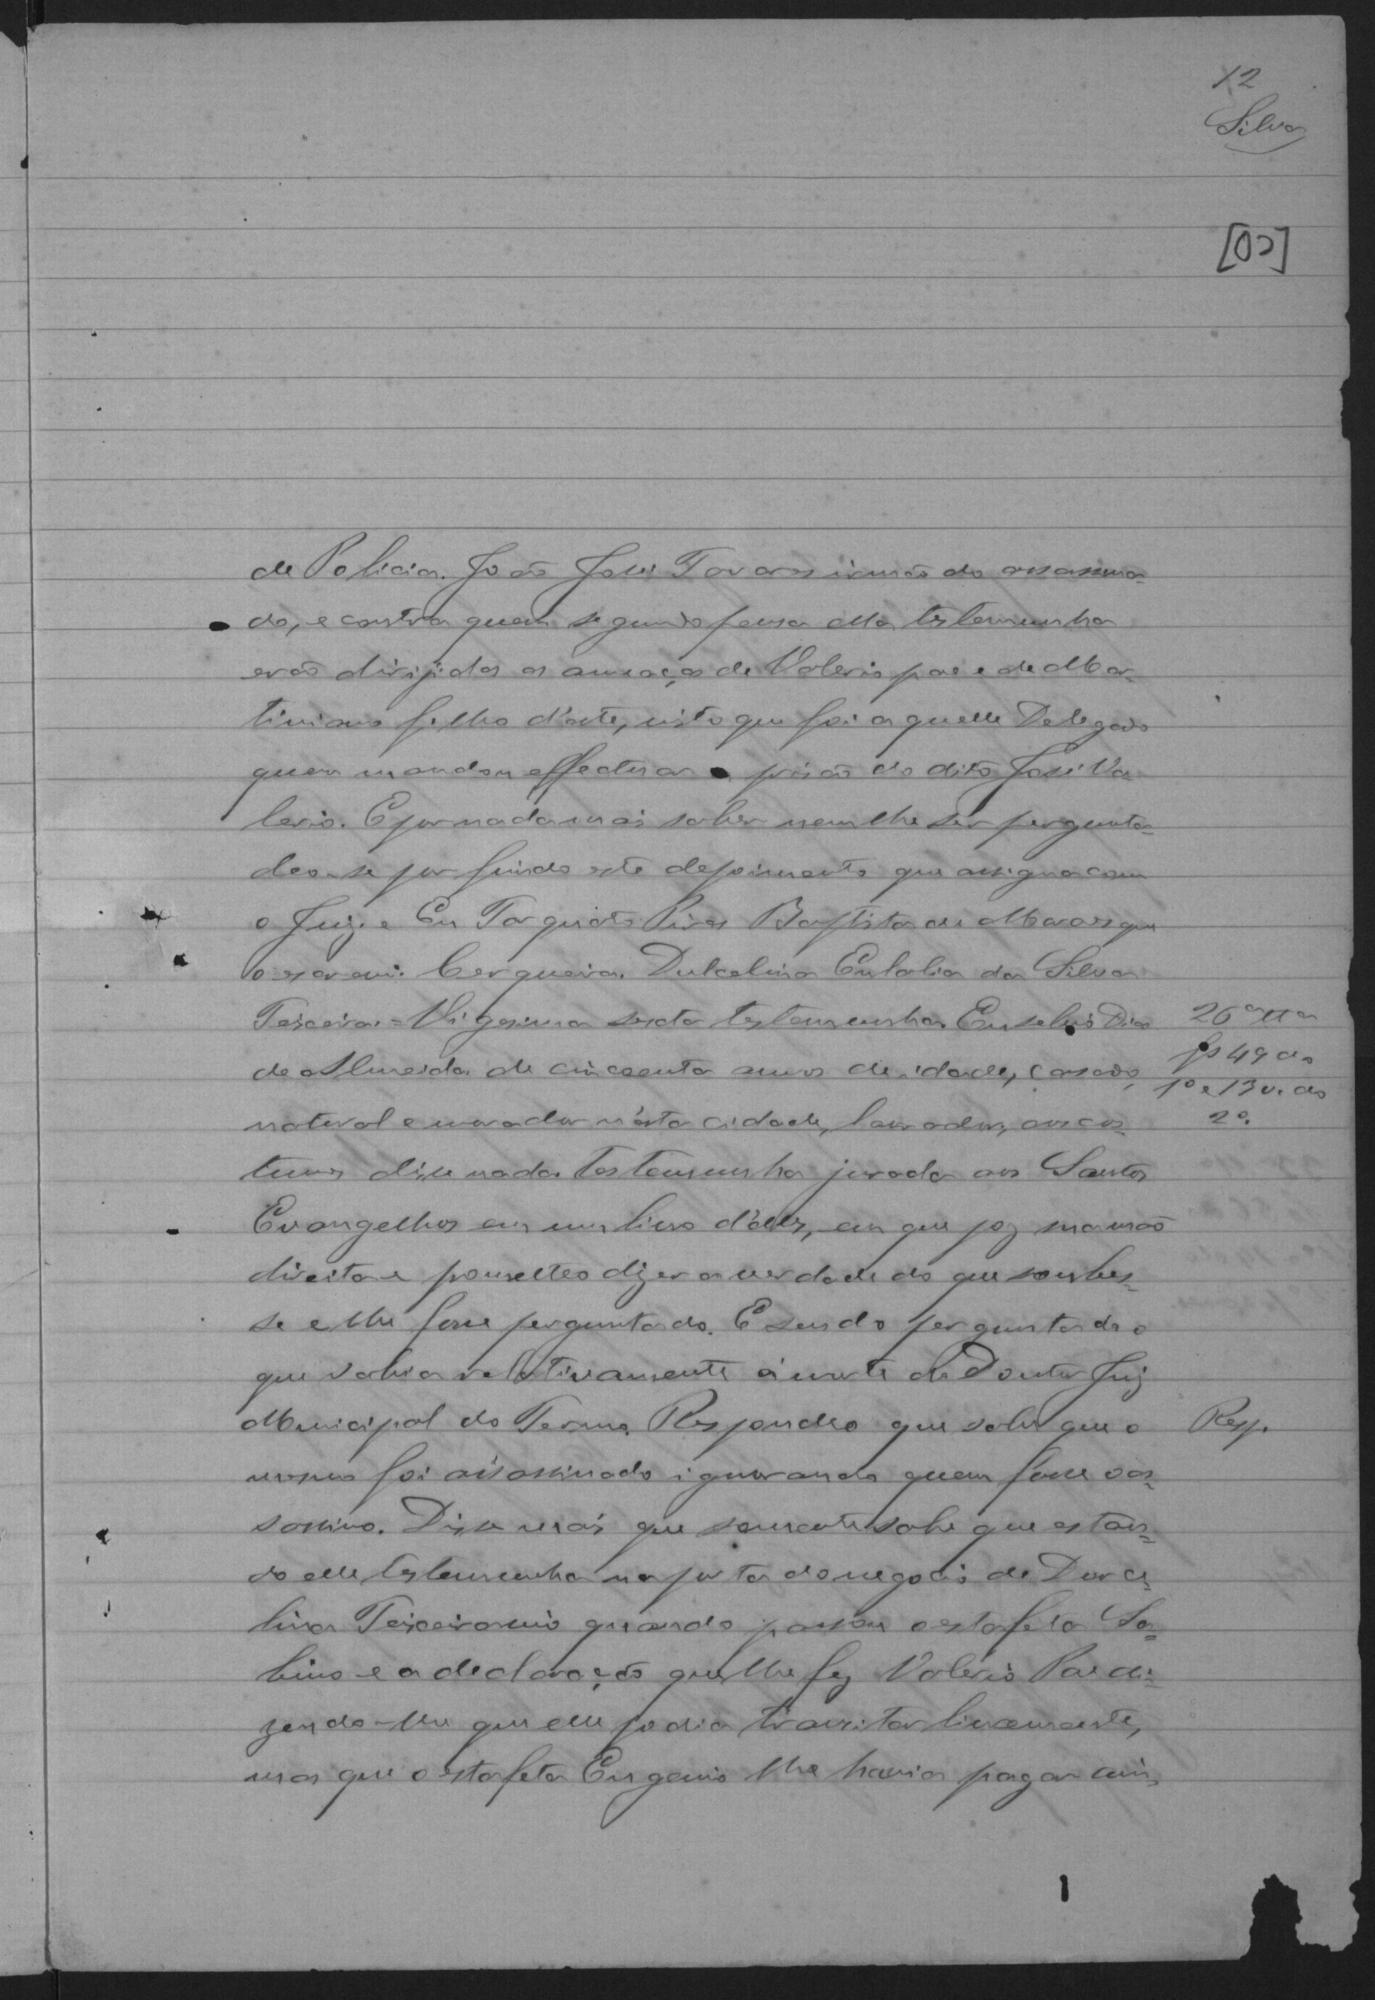 12
Silva
[02]
de Policia. João José Tavares irmão do assassina-
do, e contra quem segundo pensa ella testemunha
erão dirijidas as ameaças de Valerio pae e de Mar-
tiniano filho d'este, visto que foi aquelle Delegado
quem mandou effectuar a prisão do dito José Va-
lerio. E por nada mais saber nem lhe ser pergunta-
do deo-se por findo este depoimento que assigna com
o Juiz e Eu Torquato Pires Baptista de Moraes que
o escrevi. Cerqueira. Dulcelina Eulalia da Silva
Teixeira = Vigesima sexta testemunha Eusebio Dias
de Almeida de cincoenta annos de idade, casado,
natural e morador n'esta cidade, lavrador, aos cos-
tumes disse nada. Testemunha jurada aos Santos
Evangelhos em um livro d'elles, em que poz sua mão
direita e prometteo dizer a verdade do que soubes-
se e lhe fosse perguntado. E sendo perguntado o
que sabia relativamente á morte do Doutor Juiz
Municipal do Termo. Respondeo que sabe que o
mesmo foi assassinado ignorando quem fosse o as-
sassino. Disse mais que somente sabe que estan-
do elle testemunha na porta do negocio de Durce-
lina Teixeira quando passou o estafeta Sa-
bino e a declaração que lhe fez Valerio Pae di-
zendo-lhe que elle podia transitar livremente,
mas que o estafeta Eugenio lhe havia pagar cin-
26ª tta
fs 49 do
1º e 13 v. do
2º.
Resp.